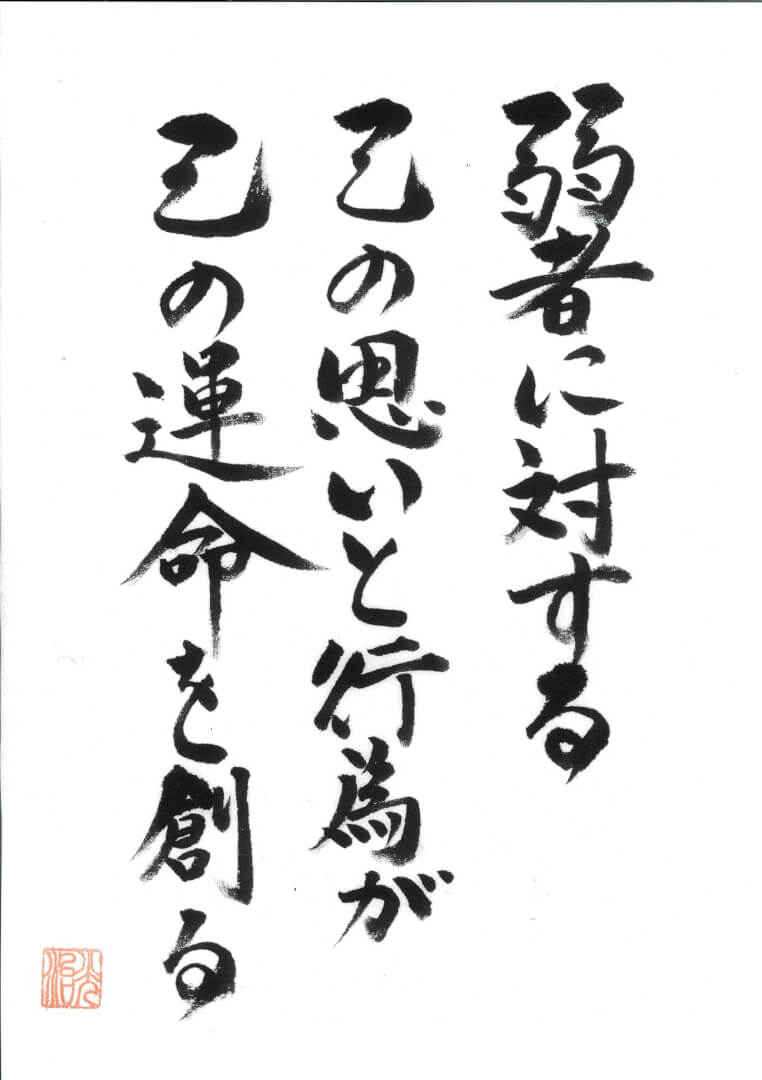 弱者に対する
己の思いと行為が
己の運命を創る